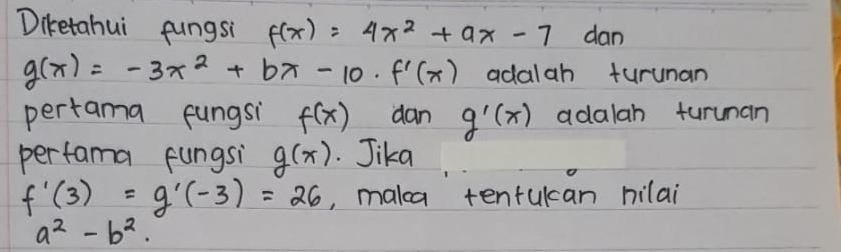 Diketahui fungsi f(x) = 4x² + ax - 7 dan
g(x) = - 3x² + bx - 10. f'(x) adalah turunan
pertama fungsi f(x) dan g'(x) adalah turunan
pertama fungsi g(x). Jika
f'(3) = g'(-3) = 26, maka tentukan nilai
a² - b².